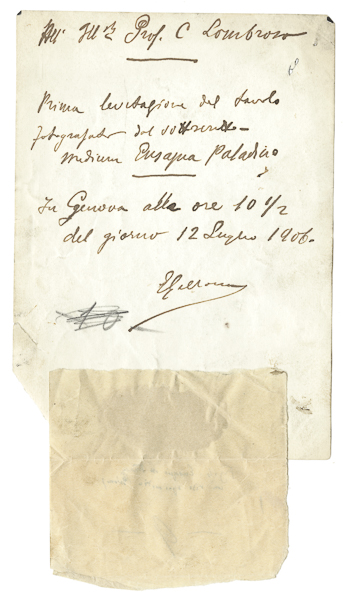 All' Ill. Prof. C Lombroso
Prima levitazione del tavolo
fotografata dal sottoscritto -
medium Eusapia Paladino
In Genova alle ore 10 1/2
del giorno 12 Luglio 1906.